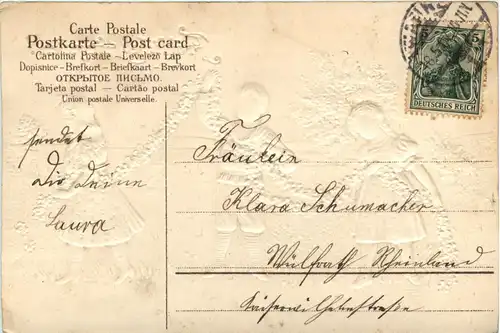 Carte Postale
Postkarte – Post card
Cartolina Postale – Levelező Lap
Dopisnice – Brefkort – Briefkaart – Brevkort
ОТКРЫТОЕ ПИСЬМО.
Tarjeta postal – Cartão postal
Union postale Universelle.
5 5
DEUTSCHES REICH
sendet
Dir Deine
Laura
Fräulein
Klara Schumacher
Wülfrath Rheinland
Kaiserwilhelmstraße